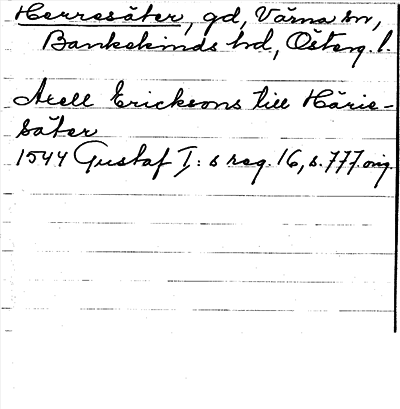 Herresäter, gd, Värna sn,
Bankekinds hd, Österg. l.
Axell Ericksons till Härie-
säter
1544 Gustaf I: s reg. 16, s. 777. orig.